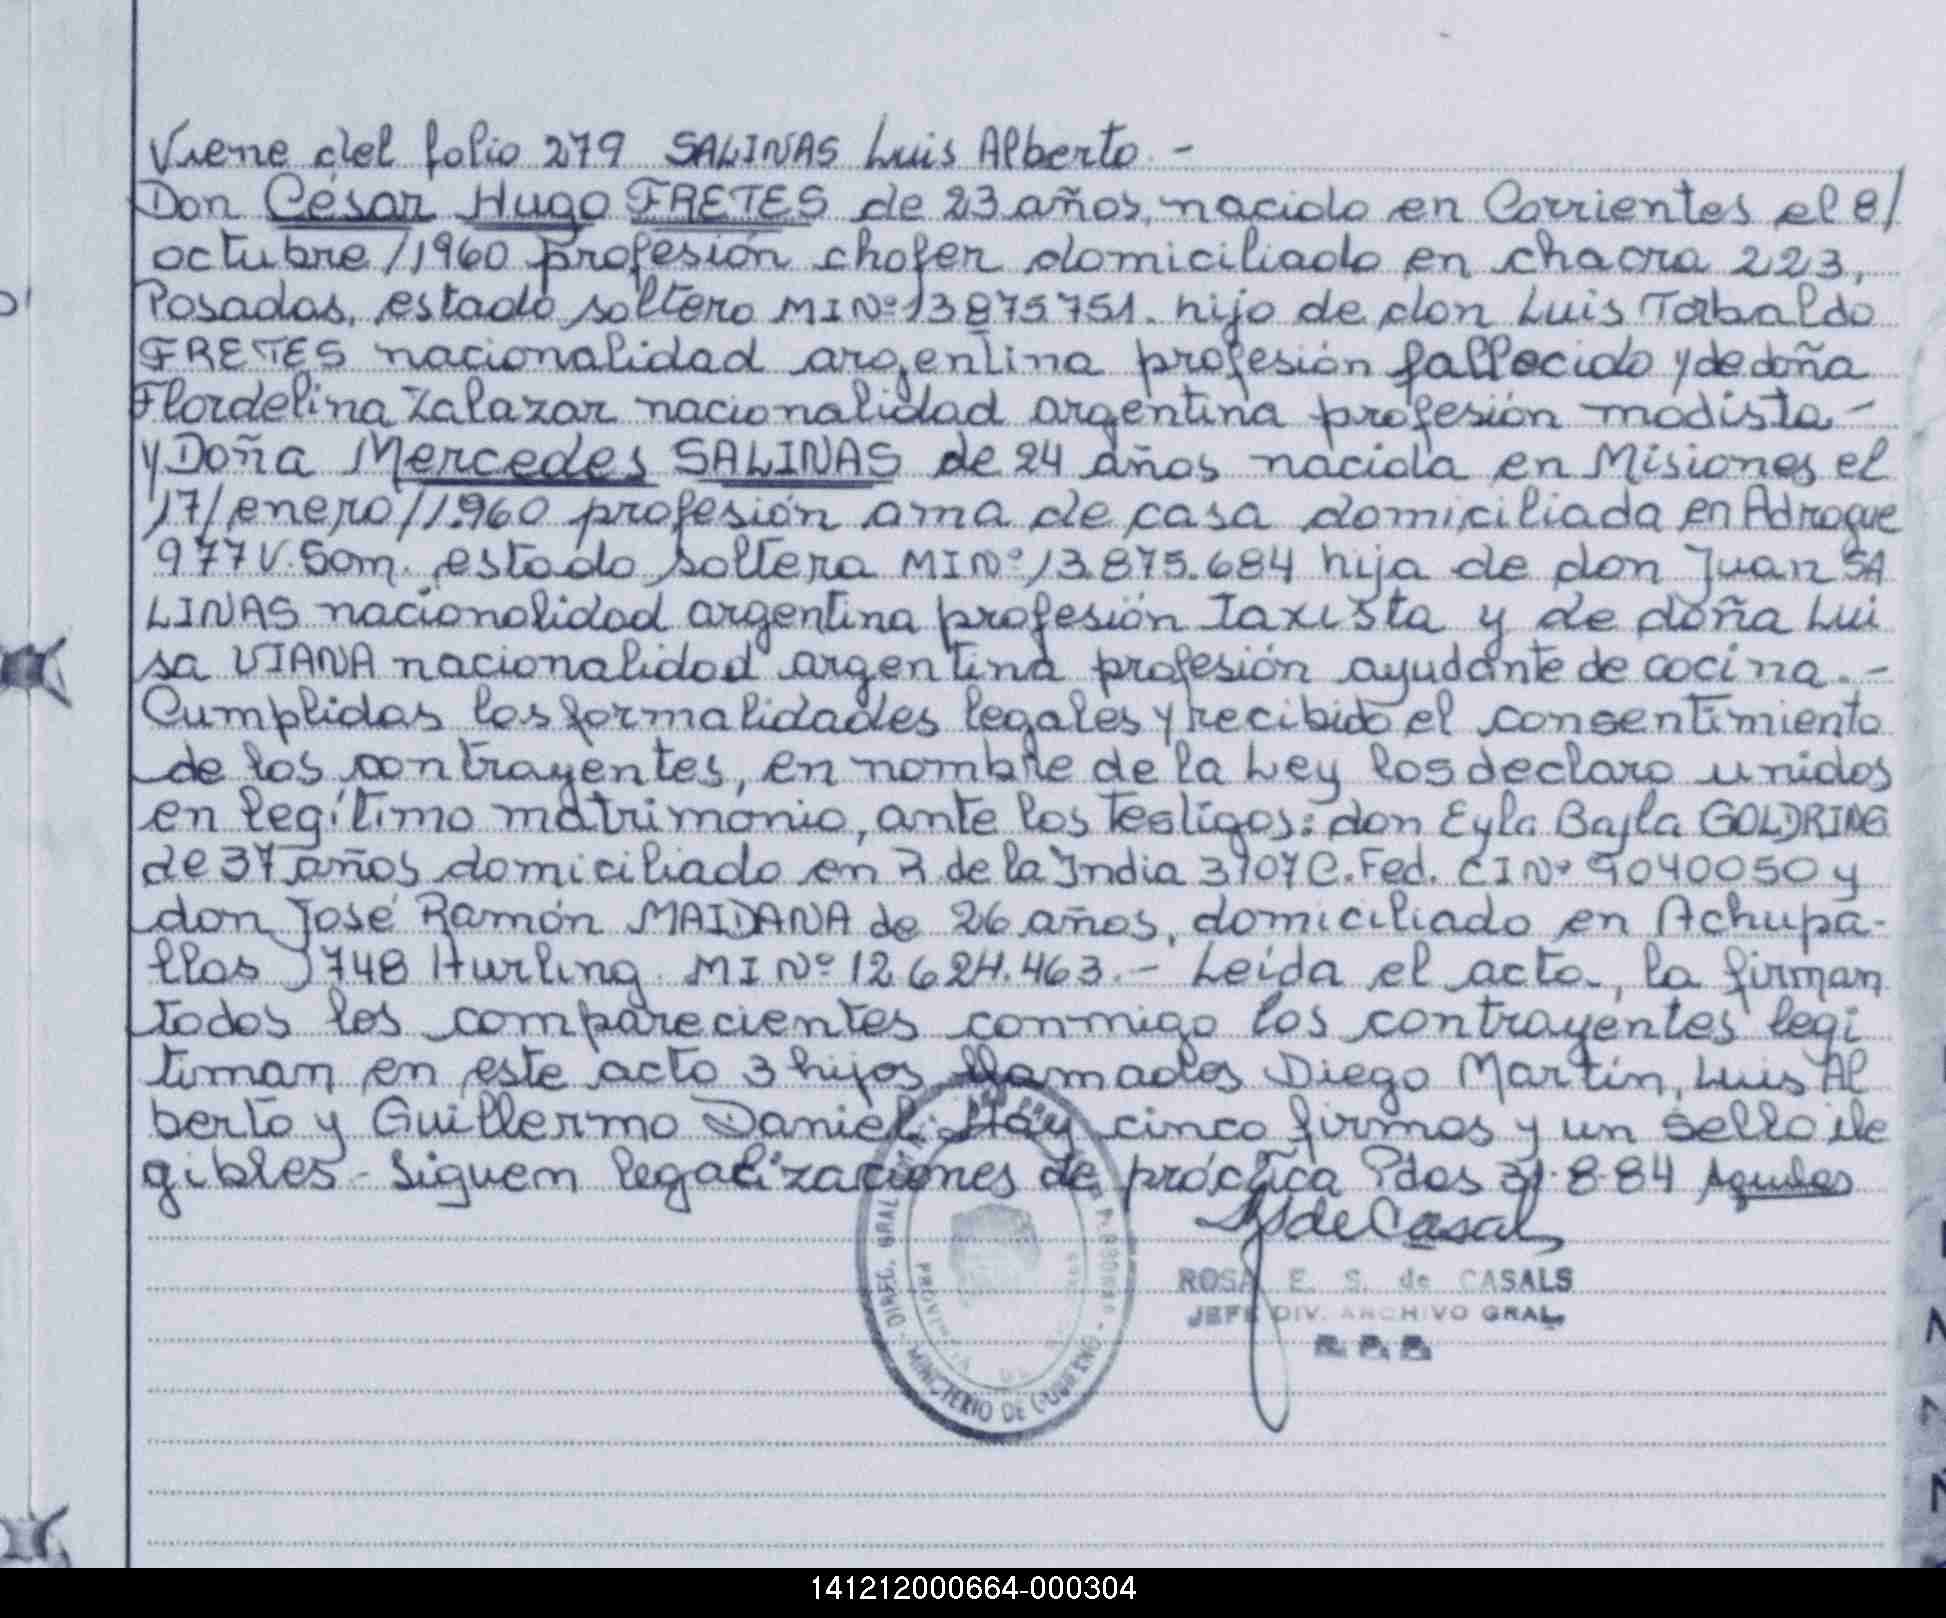 Viene del folio 279 SALINAS Luis Alberto.-
Don César Hugo FRETES de 23 años, nacido en Corrientes el 8/
octubre/1960 profesión chofer domiciliado en chacra 223,
Posadas, estado soltero MI Nº 13875751. hijo de don Luis Torbaldo
FRETES nacionalidad argentina profesión fallecido y de doña
Flordelina Zalazar nacionalidad argentina profesión modista-
y Doña Mercedes SALINAS de 24 años nacida en Misiones el
17/enero/1.960 profesión ama de casa domiciliada en Adrogue
977 V. Bom. estado soltera MI Nº 13.875.684 hija de don Juan SA
LINAS nacionalidad argentina profesión Taxista y de doña Lui
sa VIANA nacionalidad argentina profesión ayudante de cocina.-
Cumplidas las formalidades legales y recibido el consentimiento
de los contrayentes, en nombre de la Ley los declaro unidos
en legítimo matrimonio, ante los testigos: don Eyla Bajla GOLDRING
de 37 años domiciliado en R. de la India 3107 C. Fed. CI Nº 9040050 y
don José Ramón MAIDANA de 26 años, domiciliado en Achupa-
llas 1748 Hurling. MI Nº 12.624.463.- Leída el acta, la firman
todos los comparecientes conmigo los contrayentes legi
timan en este acto 3 hijos llamados Diego Martín, Luis Al
berto y Guillermo Daniel. Hay cinco firmas y un sello ile
gibles- Siguen legalizaciones de práctica Pdas 31-8-84
de Casals
ROSA E. S. de CASALS
JEFE DIV. ARCHIVO GRAL.
R. P. P.
DIREC. GRAL
PROVINCIA DE
MINISTERIO DE GOBIERNO
141212000664-000304